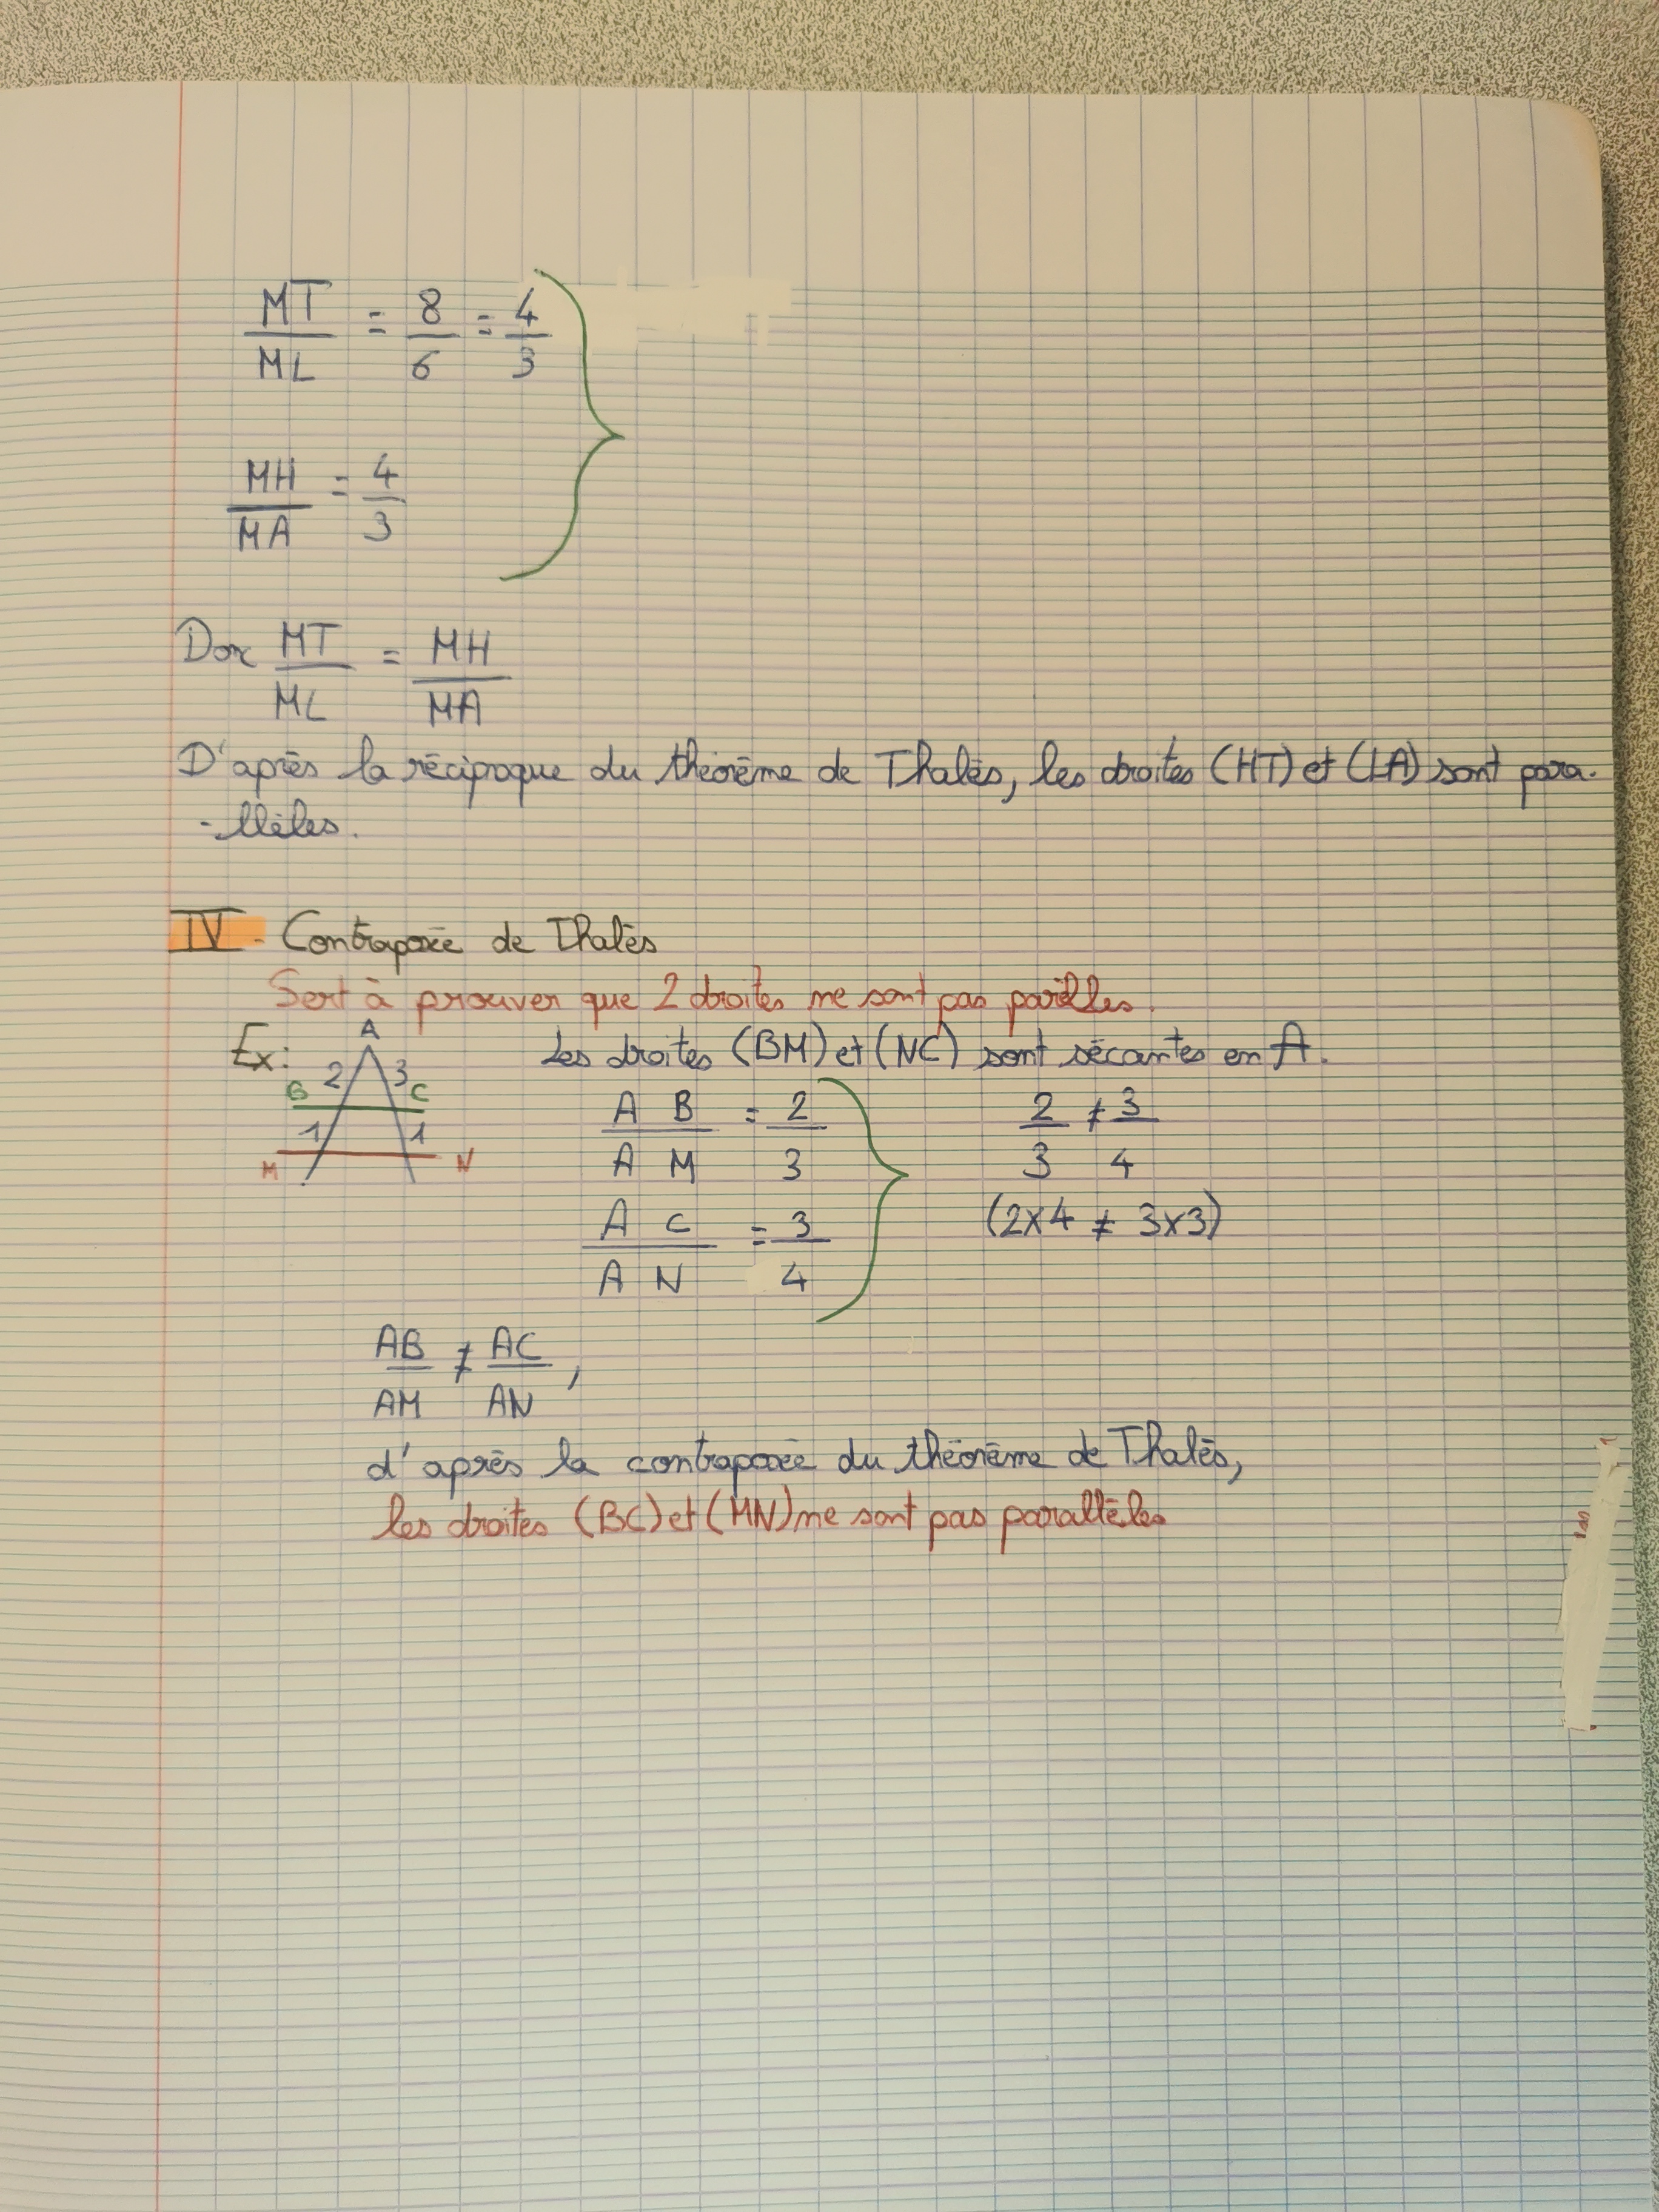 MT/ML = 8/6 = 4/3
MH/MA = 4/3
Donc MT/ML = MH/MA
D'après la réciproque du théorème de Thalès, les droites (HT) et (LA) sont para-
-llèles.
IV - Contraposée de Thalès
Sert à prouver que 2 droites ne sont pas
Ex:
A
2 3
B C
1 1
M N
Les droites (BM) et (NC) sont sécantes en A.
AB/AM = 2/3
2/3 ≠ 3/4
AC/AN = 3/4
(2x4 ≠ 3x3)
AB/AM ≠ AC/AN,
d'après la contraposée du théorème de Thalès,
les droites (BC) et (MN) ne sont pas parallèles